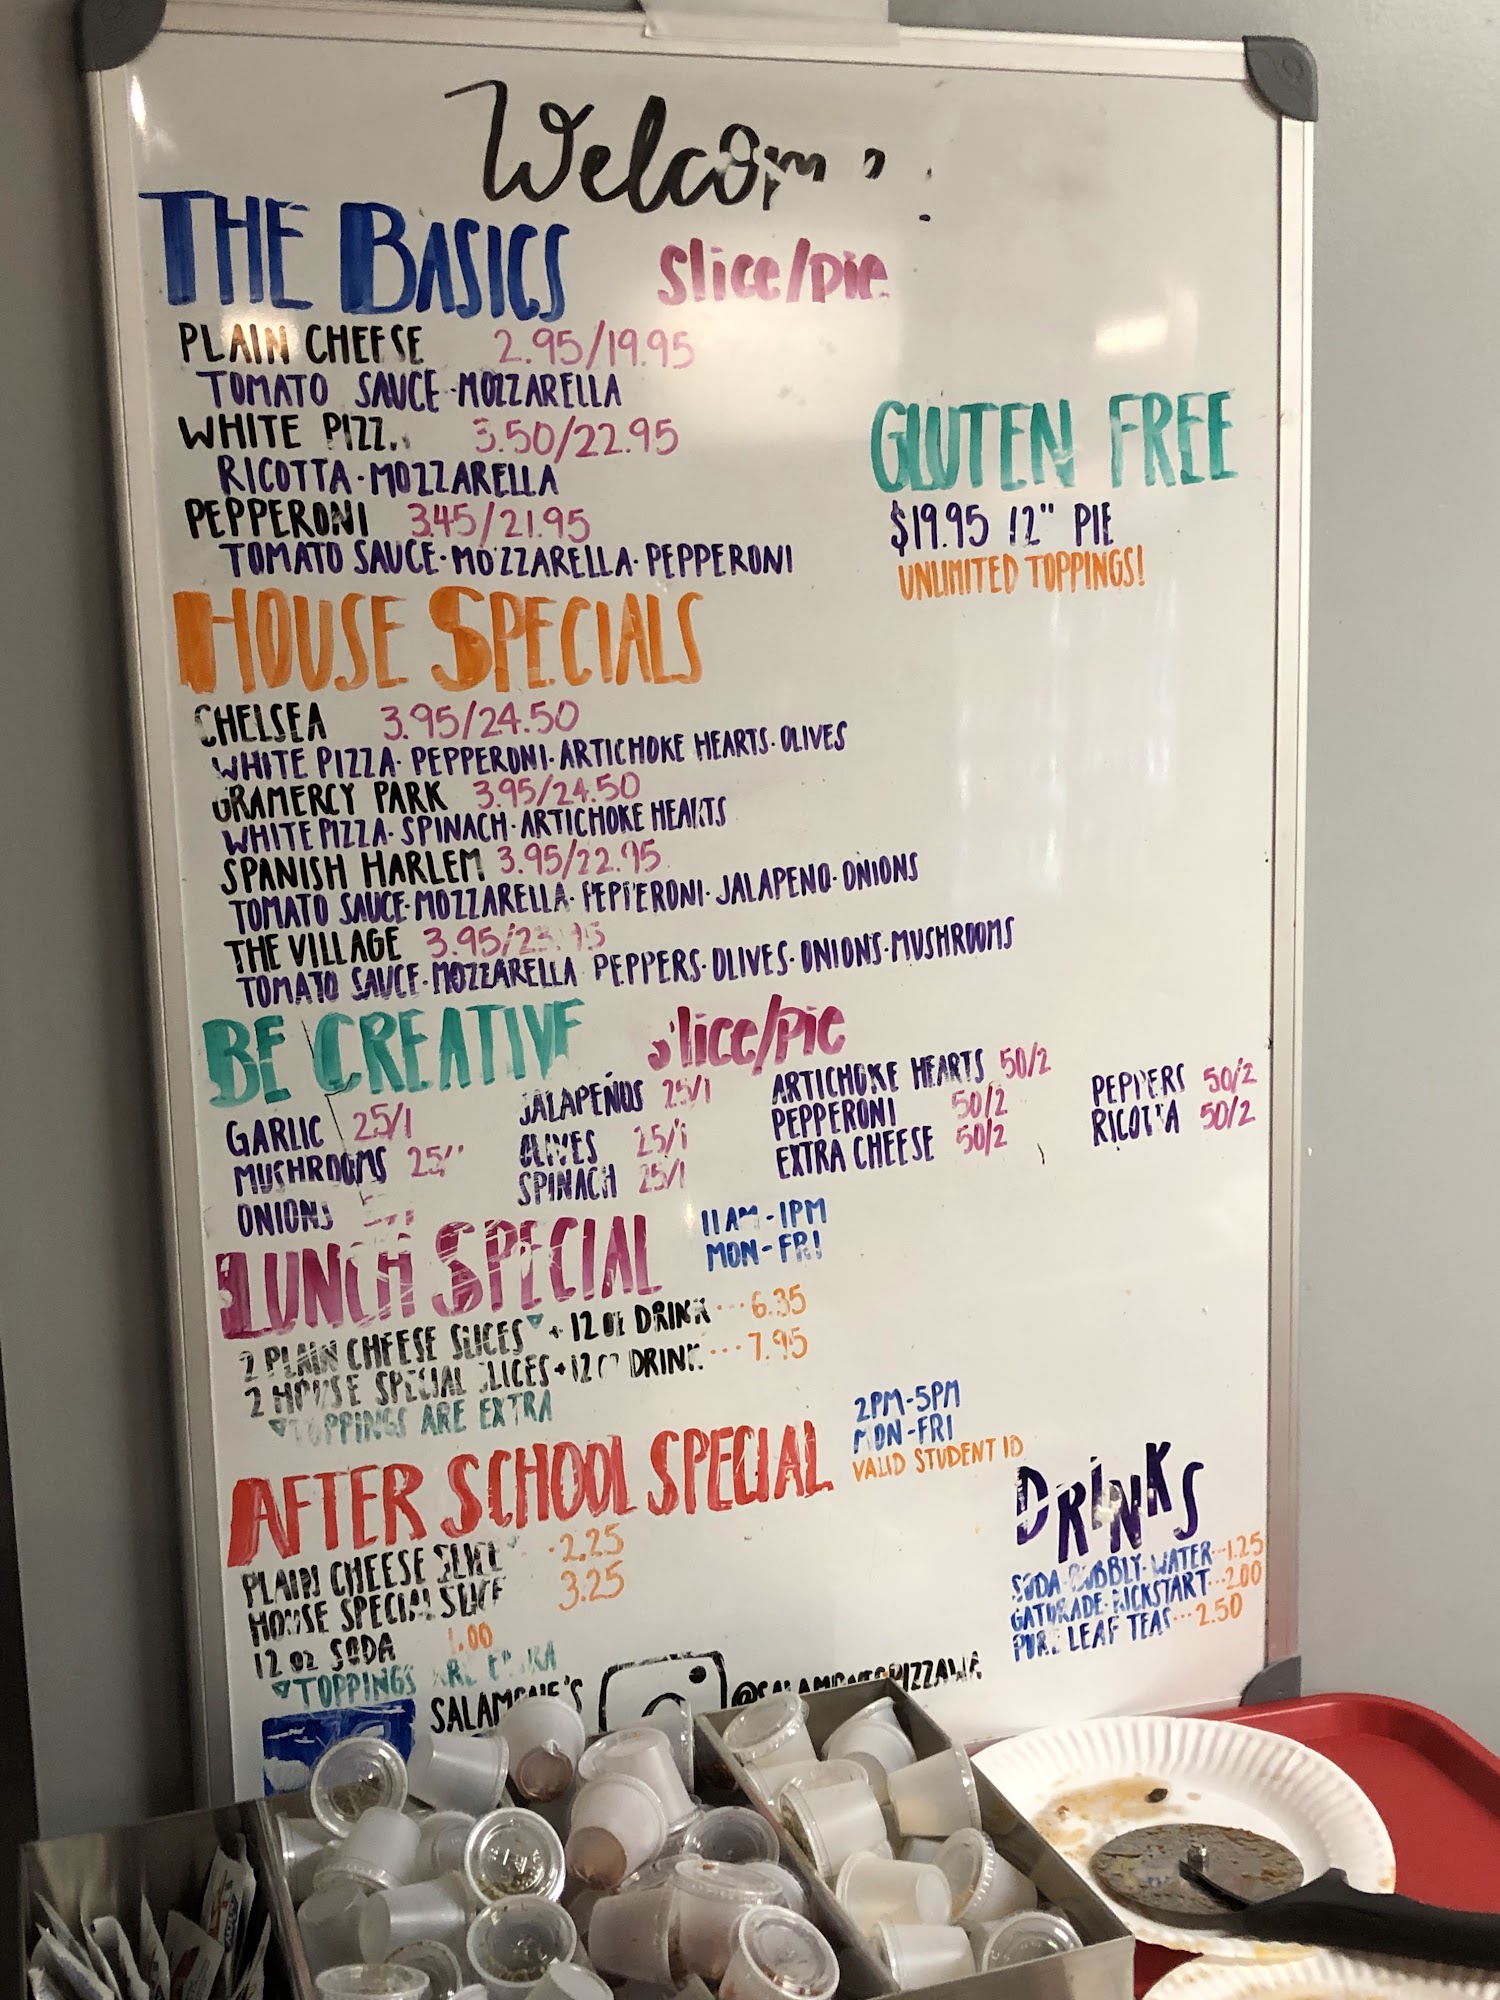 THE BASICS slice/pie
PLAIN CHEESE 2.95/19.95
TOMATO SAUCE · MOZZARELLA
WHITE 3.50/22.95
RICOTTA · MOZZARELLA
PEPPERONI 3.45/21.95
TOMATO SAUCE · MOZZARELLA · PEPPERONI
GLUTEN FREE
$19.95 12" PIE
UNLIMITED TOPPINGS!
HOUSE SPECIALS
CHELSEA 3.95/24.50
WHITE PIZZA · PEPPERONI · ARTICHOKE HEARTS · OLIVES
GRAMERCY PARK 3.95/24.50
WHITE PIZZA · SPINACH · ARTICHOKE HEARTS
SPANISH HARLEM 3.95/22.95
TOMATO SAUCE · MOZZARELLA · PEPPERONI · JALAPENO · ONIONS
THE VILLAGE
TOMATO SAUCE · MOZZARELLA PEPPERS · OLIVES · ONIONS · MUSHROOMS
BE CREATIVE slice/pie
GARLIC 25/1
MUSHROOMS
ONIONS
JALAPEÑOS 25/1
OLIVES 25/1
SPINACH 25/1
ARTICHOKE HEARTS 50/2
PEPPERONI 50/2
EXTRA CHEESE 50/2
PEPPERS 50/2
RICOTTA 50/2
LUNCH SPECIAL
11AM - 1PM
MON - FRI
2 PLAIN CHEESE SLICES + 12 OZ DRINK ··· 6.35
2 HOUSE SPECIAL SLICES + 12 OZ DRINK ··· 7.95
TOPPINGS ARE EXTRA
AFTER SCHOOL SPECIAL
2PM-5PM
MON-FRI
VALID STUDENT ID
PLAIN CHEESE SLICE 2.25
HOUSE SPECIAL SLICE 3.25
12 OZ SODA 1.00
TOPPINGS ARE EXTRA
DRINKS
SODA · BUBBLY · WATER ··· 1.25
GATORADE · KICKSTART ··· 2.00
PURE LEAF TEAS ··· 2.50
SALAMONE'S @SALAMONESPIZZAWA